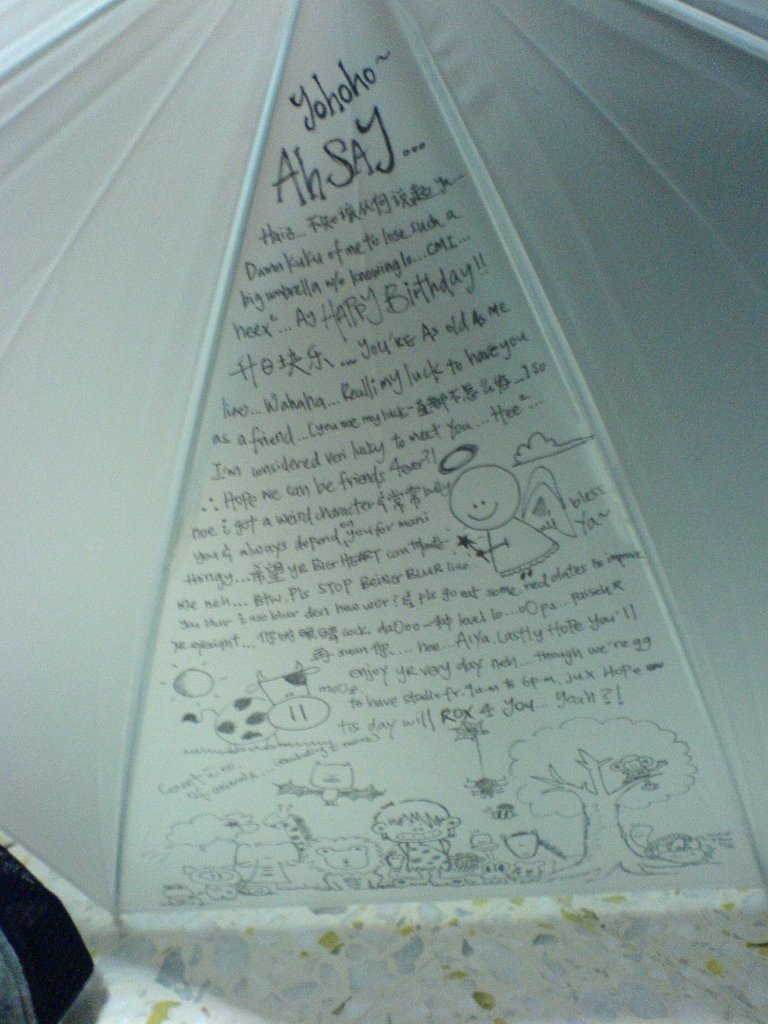 Yohoho~
Ah SAY...
Haiz... 不知该从何说起...
Damn kuku of me to lose such a
big umbrella w/o knowing lo... CMI...
heex²... Ay HAPPY Birthday!!
生日快乐... You're As old As Me
liao... Wahaha... Realli my luck to have you
as a friend... you me my luck~ so
I'm considered veri lucky to meet you... Hee²...
∴ Hope we can be friends 4ever?!
noe i got a weird character & 常常 bully
you & always depend on you for mani
thingy... 希望 yr BIG HEART can
me neh... Btw. Pls STOP BEING BLUR liao...
you blur i oso blur den how wor? & pls go eat some red dates to improve
yr eyesight... 你的眼睛 level lo... oOps... paiseh
再 你.... hee... AiYa Lastly Hope You'll
enjoy yr very day neh... though we're gg
to have studio fr. 9am to 6p.m. jux Hope
tis day will ROX 4 you... Yeah?!
bless
Ya~
moOo
Count e no.
of animals...